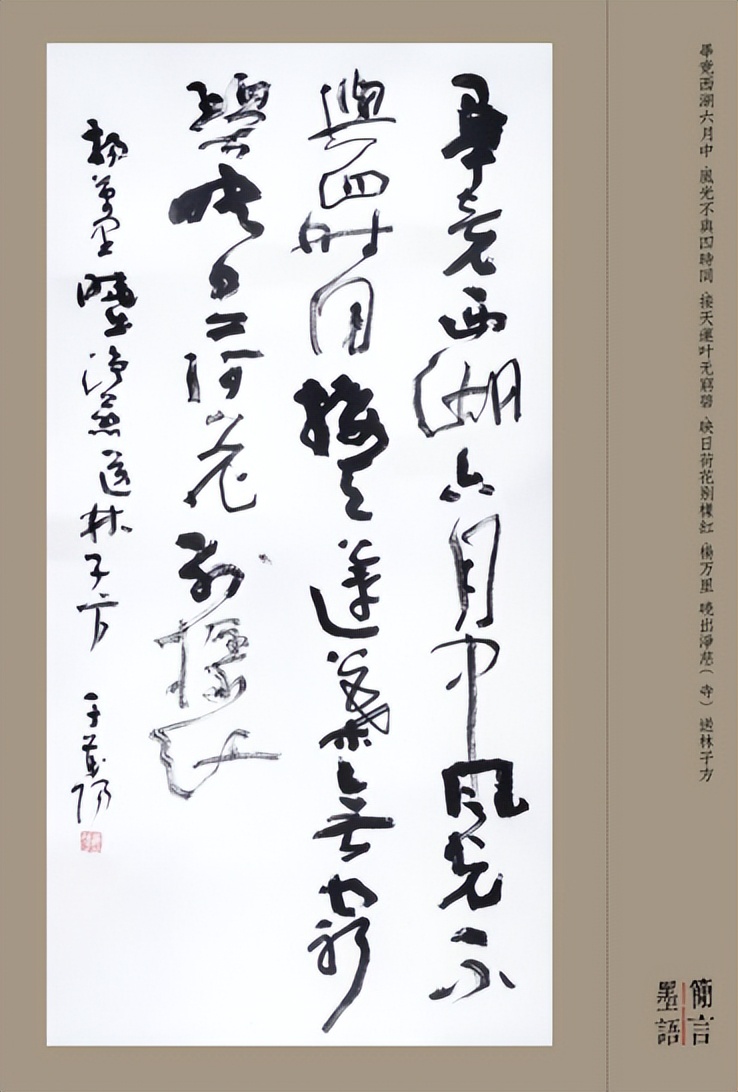 畢竟西湖六月中,風光不與四時同,接天蓮叶无窮碧,映日荷花別樣紅,楊万里 曉出淨慈(寺)送林子方
畢竟西湖六月中風光不
與四時同接天蓮葉無窮
碧映日荷花別樣紅
楊萬里曉出淨慈送林子方 于茂陽
簡言
墨語